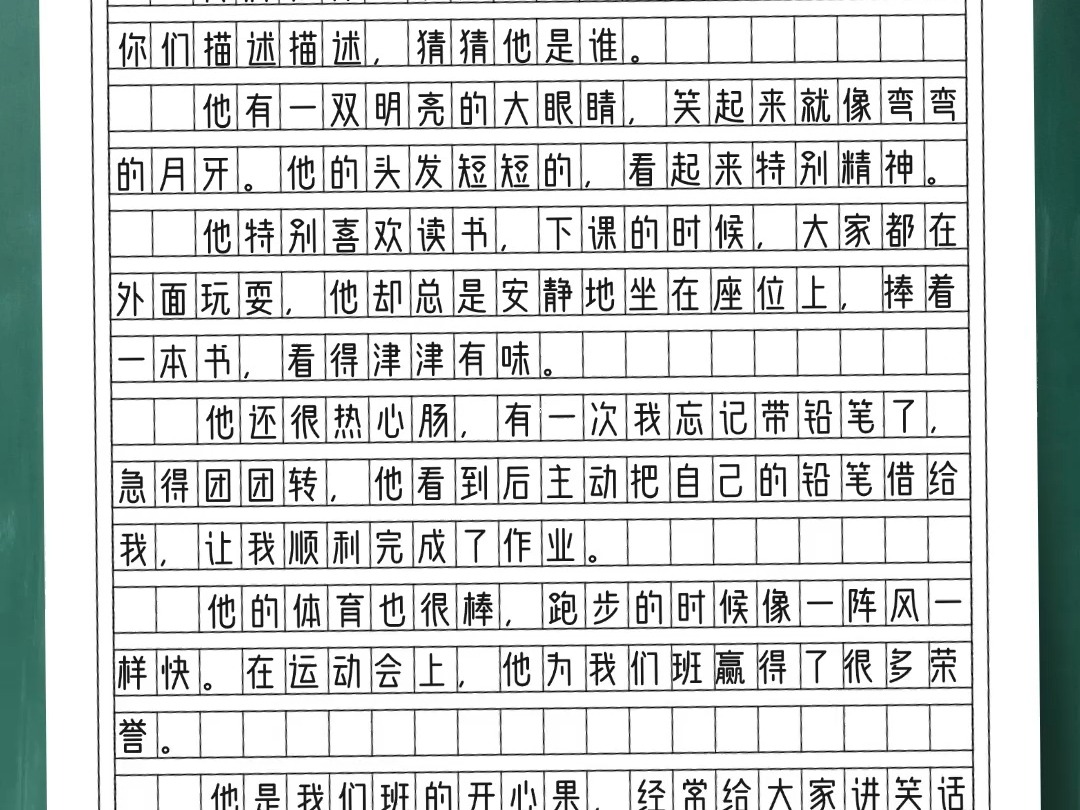 你们描述描述，猜猜他是谁。
他有一双明亮的大眼睛，笑起来就像弯弯
的月牙。他的头发短短的，看起来特别精神。
他特别喜欢读书，下课的时候，大家都在
外面玩耍，他却总是安静地坐在座位上，捧着
一本书，看得津津有味。
他还很热心肠，有一次我忘记带铅笔了，
急得团团转，他看到后主动把自己的铅笔借给
我，让我顺利完成了作业。
他的体育也很棒，跑步的时候像一阵风一
样快。在运动会上，他为我们班赢得了很多荣
誉。
他是我们班的开心果，经常给大家讲笑话